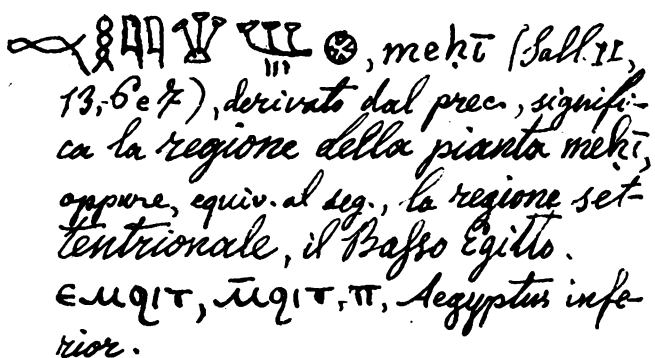 , meḥī (Sall. II,
13,-6 e 7), derivato dal prec., signifi-
ca la regione della pianta meḥī,
oppure, equiv. al seg., la regione set-
tentrionale, il Basso Egitto.
ⲉⲙϩⲓⲧ, ⲙ̄ϩⲓⲧ, ⲡ, Aegyptus infe-
rior.